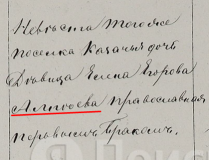 Невѣста тогоже
поселка казачья дочь
Дѣвица Елена Егорова
Алпгоева православная
первымъ бракомъ.